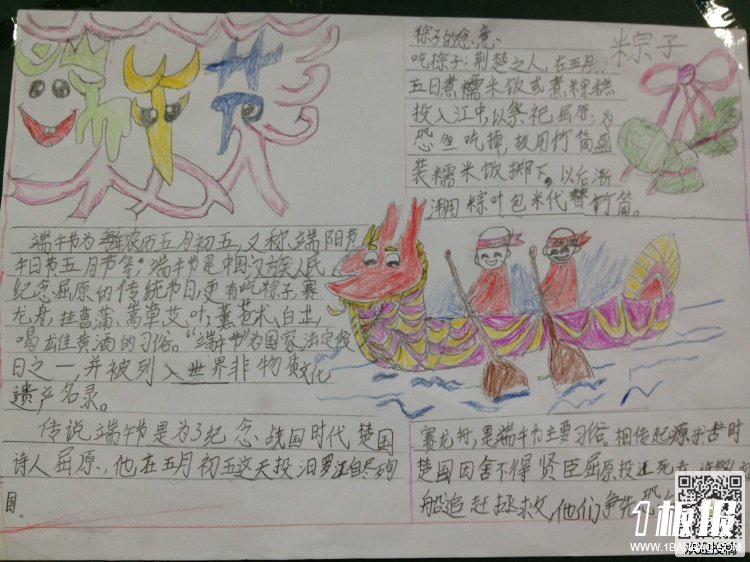 端午节
粽子的念意:
粽子
吃粽子:荆楚之人,在五月
五日煮糯米饭或煮粽糕
投入江中,以祭祀屈原,为
恐鱼吃掉,故用竹筒盛
装糯米饭掷下,以后渐
渐用粽叶包米代替竹筒。
端午节为每年农历五月初五,又称端阳节
午日节五月节等。端午节是中国汉族人民
纪念屈原的传统节日,更有吃粽子赛
龙舟,挂菖蒲、蒿草艾叶,薰苍术、白芷,
喝雄黄酒的习俗。“端午节”为国家法定假
日之一并被列入世界非物质文化
遗产名录。
传说端午节是为了纪念战国时代楚国
诗人屈原,他在五月初五这天投汨罗江自尽殉
国。
赛龙舟,是端午节主要习俗。相传起源于古时
楚国因舍不得贤臣屈原投江死去,许多人
船追赶拯救,他们争先恐
1板报
WWW.1BANBAO.COM
欢迎投稿